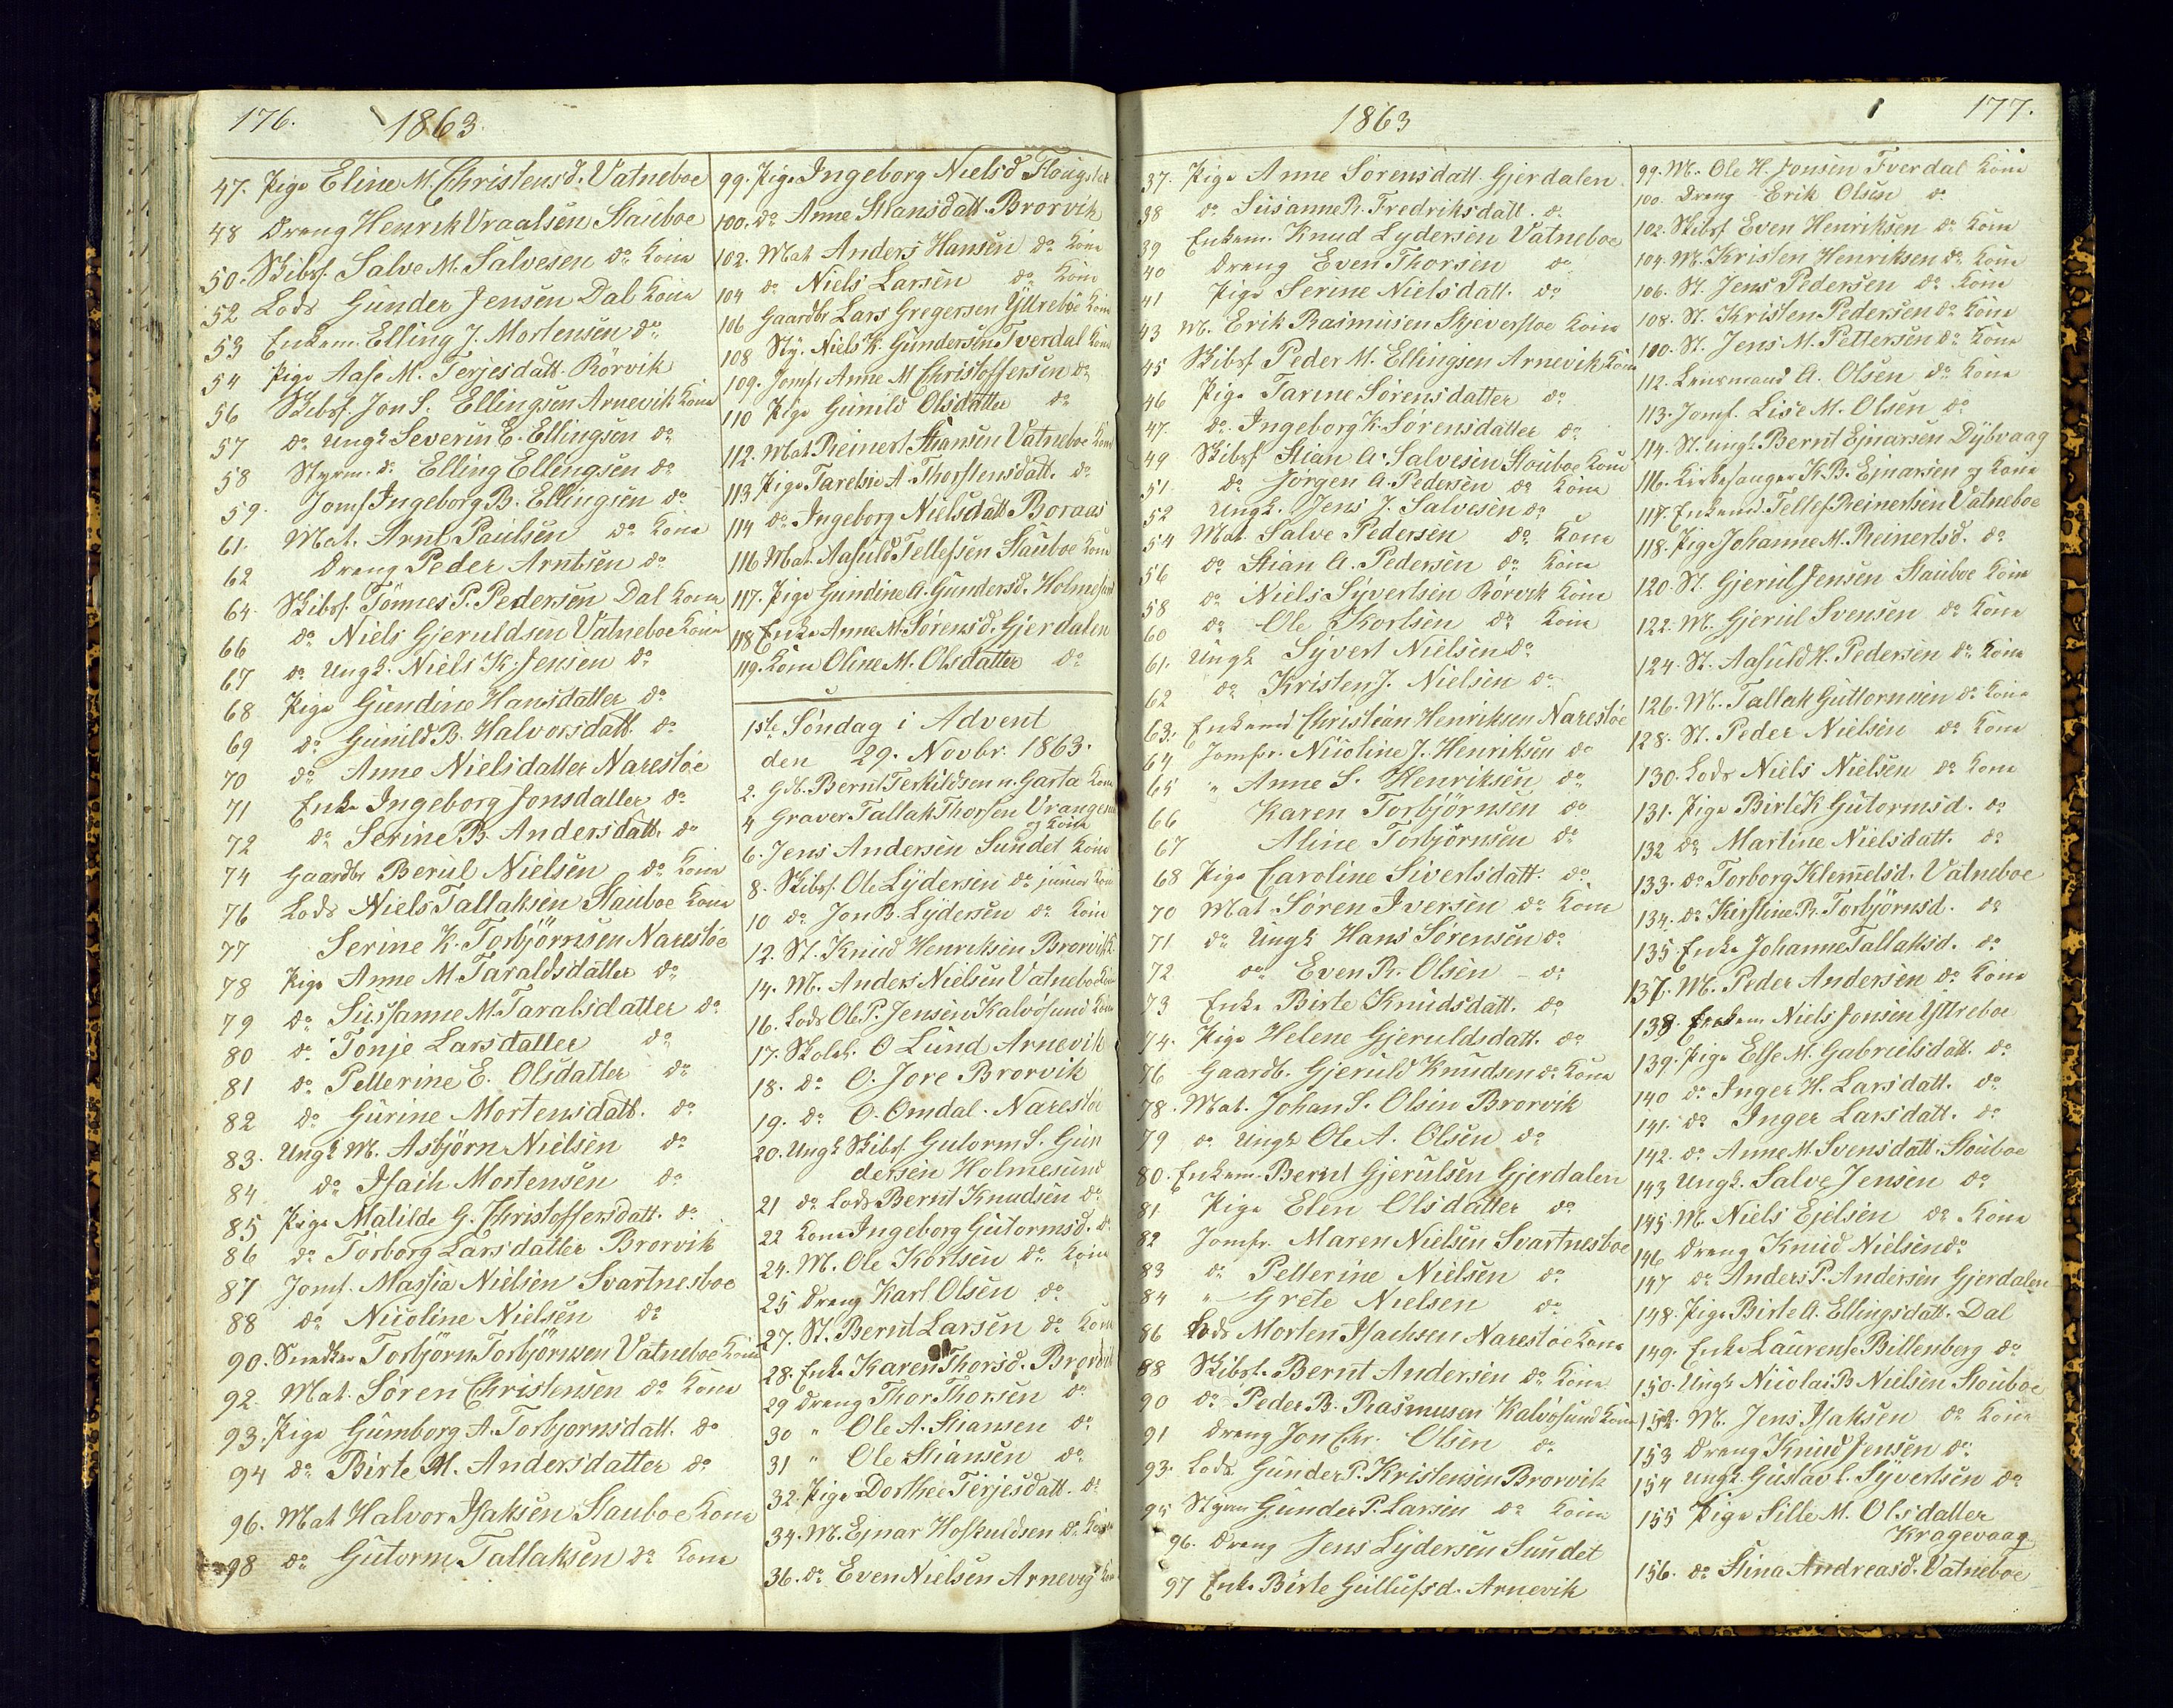 176.
1863.
47. Pige Eline M. Christensd. Vatneboe
48 Dreng Henrik Vraalsen Stauboe
50. Skibsf. Salve M. Salvesen do Kone
52 Lods Gunder Jensen Dal Kone
53 Enkem. Elling J. Mortensen do
54 Pige Aase M. Terjesdatt. Rörvik
56 Skibsf. Jon S. Ellingsen Arnevik Kone
57 do Ungk Severin E. Ellingsen do
58 Styrm. do Elling Ellingsen do
59. Jomf Ingeborg B. Ellingsen do
61. Mat. Arnt Paulsen do Kone
62 Dreng Peder Arntsen do
64. Skibsf. Tönnes P. Pedersen Dal Kone
66 do Niels Gjeruldsen Vatneboe Kone
67 do Ungk. Niels K. Jensen do
68 Pige Gundine Hansdatter do
69 do Gunild B. Halvorsdatt. do
70 do Anne Nielsdatter Narestöe
71 Enke Ingeborg Jonsdatter do
72 do Serine B. Andersdatt. do
74 Gaardbr Berul Nielsen do Kone
76 Lods Niels Tallaksen Stauboe Kone
77 Serine K. Torbjörnsen Narestöe
78 Pige Anne M. Taraldsdatter do
79 do Sussanne M. Taralsdatter do
80 do Tonje Larsdatter do
81 do Petterine E. Olsdatter do
82 do Gurine Mortensdatt. do
83. Ungk M. Asbjörn Nielsen do
84 do Isach Mortensen do
85 Pige Matilde G. Christoffersdatt. do
86 do Torborg Larsdatter Brorvik
87 Jomf. Massia Nielsen Svartnesboe
88 do Nicoline Nielsen do
90. Snedker Torbjörn Torbjörnsen Vatneboe Kone
92. Mat. Sören Christensen do Kone
93. Pige Gumborg A. Torbjornsdatt. do
94 do Birte M. Andersdatter do
96. Mat Halvor Isaksen Stauboe Kone
98 do Gutorm Tallaksen do Kone
99. Pige Ingeborg Nielsd
100. do Anne Stiansdatt. Brorvik
102. Mat Anders Hansen do Kone
104 do Niels Larsen do Kone
106 Gaardbr Lars Gregersen Yttreboe Kone
108 Sty. Niels K. Gundersen Tverdal Kone
109. Jomfr Anne M Christoffersen do
110 Pige Gunild Olsdatter do
112. Mat Reinert Stiansen Vatneboe Kone
113 Pige Tarelsie A. Thorstensdatt. do
114 do Ingeborg Nielsdatt Boraas
116 Mat. Aasuld Tellefsen Stauboe Kone
117. Pige Gundine A. Gundersd. Holmesund
118 Enke Anne M. Sörensd. Gjerdalen
119. Kone Oline M. Olsdatter do
1ste Söndag i Advent
den 29. Novbr. 1863.
2. Gdb. Bernt Terkildsen n. Garta Kone
4 Graver Tallak Thorsen Vrangen
og Kone
6. Jens Andersen Sundet Kone
8. Skibsf. Ole Lydersen do junior Kone
10 do Jon B. Lydersen do Kone
12. St. Knud Henriksen Brorvik
14. M. Anders Nielsen Vatneboe Kone
16. Lods Ole P. Jensen Kalvösund Kone
17. Skolel. O Lund Arnevik
18. do O. Jore Brorvik
19. do O. Omdal. Narestöe
20. Ungk Skibsf. Gutorm S. Gun
dersen Holmesund
21 do Lods Bernt Knudsen do
22 Kone Ingeborg Gutormsd. do
24. M. Ole Kortsen do Kone
25 Dreng Karl Olsen do
27. St. Bernt Larsen do Kone
28. Enke Karen Thorsd. Brorvik
29 Dreng Thor Thorsen do
30 " Ole A. Stiansen do
31 " Ole Stiansen do
32. Pige Dorthe Terjesdatt. do
34. M. Ejnar Hoskuldsen do Kone
36. do Even Nielsen Arnevig Kone
1863
177.
37. Pige Anne Sörensdatt. Gjerdalen
38 do Susanne R. Fredriksdatt. do
39 Enkem. Knud Lydersen Vatneboe
40 Dreng Even Thorsen do
41 Pige Serine Nielsdatt. do
43 M. Erik Rasmusen Skjeverstoe Kone
45 Skibsf. Peder M. Ellingsen Arnevik Kone
46 Pige Tarine Sörensdatter do
47. do Ingeborg K. Sörensdatter do
49 Skibsf Stian A. Salvesen Stouboe Kone
51 do Jörgen A. Pedersen do Kone
52 Ungk. Jens J. Salvesen do
54 Mat. Salve Pedersen do Kone
56 do Stian A. Pedersen do Kone
58 do Niels Syvertsen Rörvik Kone
60 do Ole Kortsen do Kone
61. Ungk Syvert Nielsen do
62 do Kristen J. Nielsen do
63. Enkemd Christian Henriksen Narestöe
64 Jomfr. Nicoline J. Henriksen do
65 " Anne S. Henriksen do
66 Karen Torbjörnsen do
67 Aline Torbjörnsen do
68 Pige Caroline Sivertsdatt. do
70 Mat Sören Iversen do Kone
71 do Ungk Hans Sörensen do
72 do Even R. Olsen - do
73 Enke Birte Knudsdatt. do
74. Pige Helene Gjeruldsdatt. do
76 Gaardb. Gjeruld Knudsen do Kone
78. Mat. Johan S. Olsen Brorvik
79 do Ungk Ole A. Olsen do
80. Enkem. Bernt Gjerulsen Gjerdalen
81 Pige Elen Olsdatter do
82 Jomfr. Maren Nielsen Svartnesboe
83 do Petterine Nielsen do
84 " Grete Nielsen do
86 Lods Morten Isachsen Narestöe Kone
88 Skibsf. Bernt Andersen do Kone
90 do Peder B. Rasmusen Kalvösund Kone
91 Dreng Jon Chr. Olsen do
93. Lods Gunder P. Kristensen Brorvik
95 Styrm Gunder P. Larsen do Kone
96. Dreng Jens Lydersen Sundet
97 Enke Birte Gullufsd. Arnevik
99. M. Ole H. Jonsen Tverdal Kone
100. Dreng Erik Olsen do
102. Skibsf Even Henriksen do Kone
104. M. Kristen Henriksen do Kone
106. St. Jens Pedersen do Kone
108. St. Kristen Pedersen do Kone
110. St. Jens M. Pettersen do Kone
112. Lensmand A. Olsen do Kone
113. Jomf. Lise M. Olsen do
114. St. Ungk. Bernt Ejnarsen Dybvaag
116. Kirkesanger K. B. Ejnarsen og Kone
117. Enkemd. Tellef Reinertsen Vatneboe
118. Pige Johanne M. Reinertsd. do
120. St. Gjerul Jensen Stauboe Kone
122. M. Gjerul Svensen do Kone
124. St. Aasuld H. Pedersen do Kone
126. M. Tallak Guttormsen do Kone
128. St. Peder Nielsen do Kone
130. Lods Niels Nielsen do Kone
131. Pige Birte K Gutormsd. do
132 do Martine Nielsdatt. do
133. do Torborg Klemetsd. Vatneboe
134. do Kirstine R. Torbjörnsd. do
135. Enke Johanne Tallaksd. do
137. M. Peder Andersen do Kone
138. Enkem. Niels Jonsen Yttreboe
139. Pige Else M. Gabrielsdatt. do
140 do Inger H. Larsdatt. do
141. do Inger Larsdatt. do
142. do Anne M. Svensdatt. Stouboe
143 Ungk. Salve Jensen do
145. M. Niels Ejelsen do Kone
146 Dreng Knud Nielsen do
147 do Anders P. Andersen Gjerdalen
148. Pige Birte A. Ellingsdatt. Dal
149. Enke Laurense Billenberg do
150. Ungk Nicolai B Nielsen Stouboe
152. M. Jens Isaksen do Kone
153 Dreng Knud Jensen do
154 Ungk. Gustav L. Syvertsen do
155 Pige Sille M. Olsdatter
Kragevaag
156. do Stina Andreasd. Vatneboe